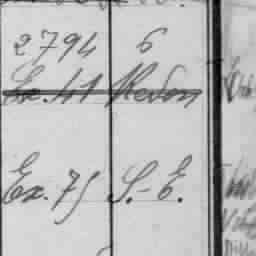 2794 6
Ex. 41 Redon
Ex. 75 S.-E.